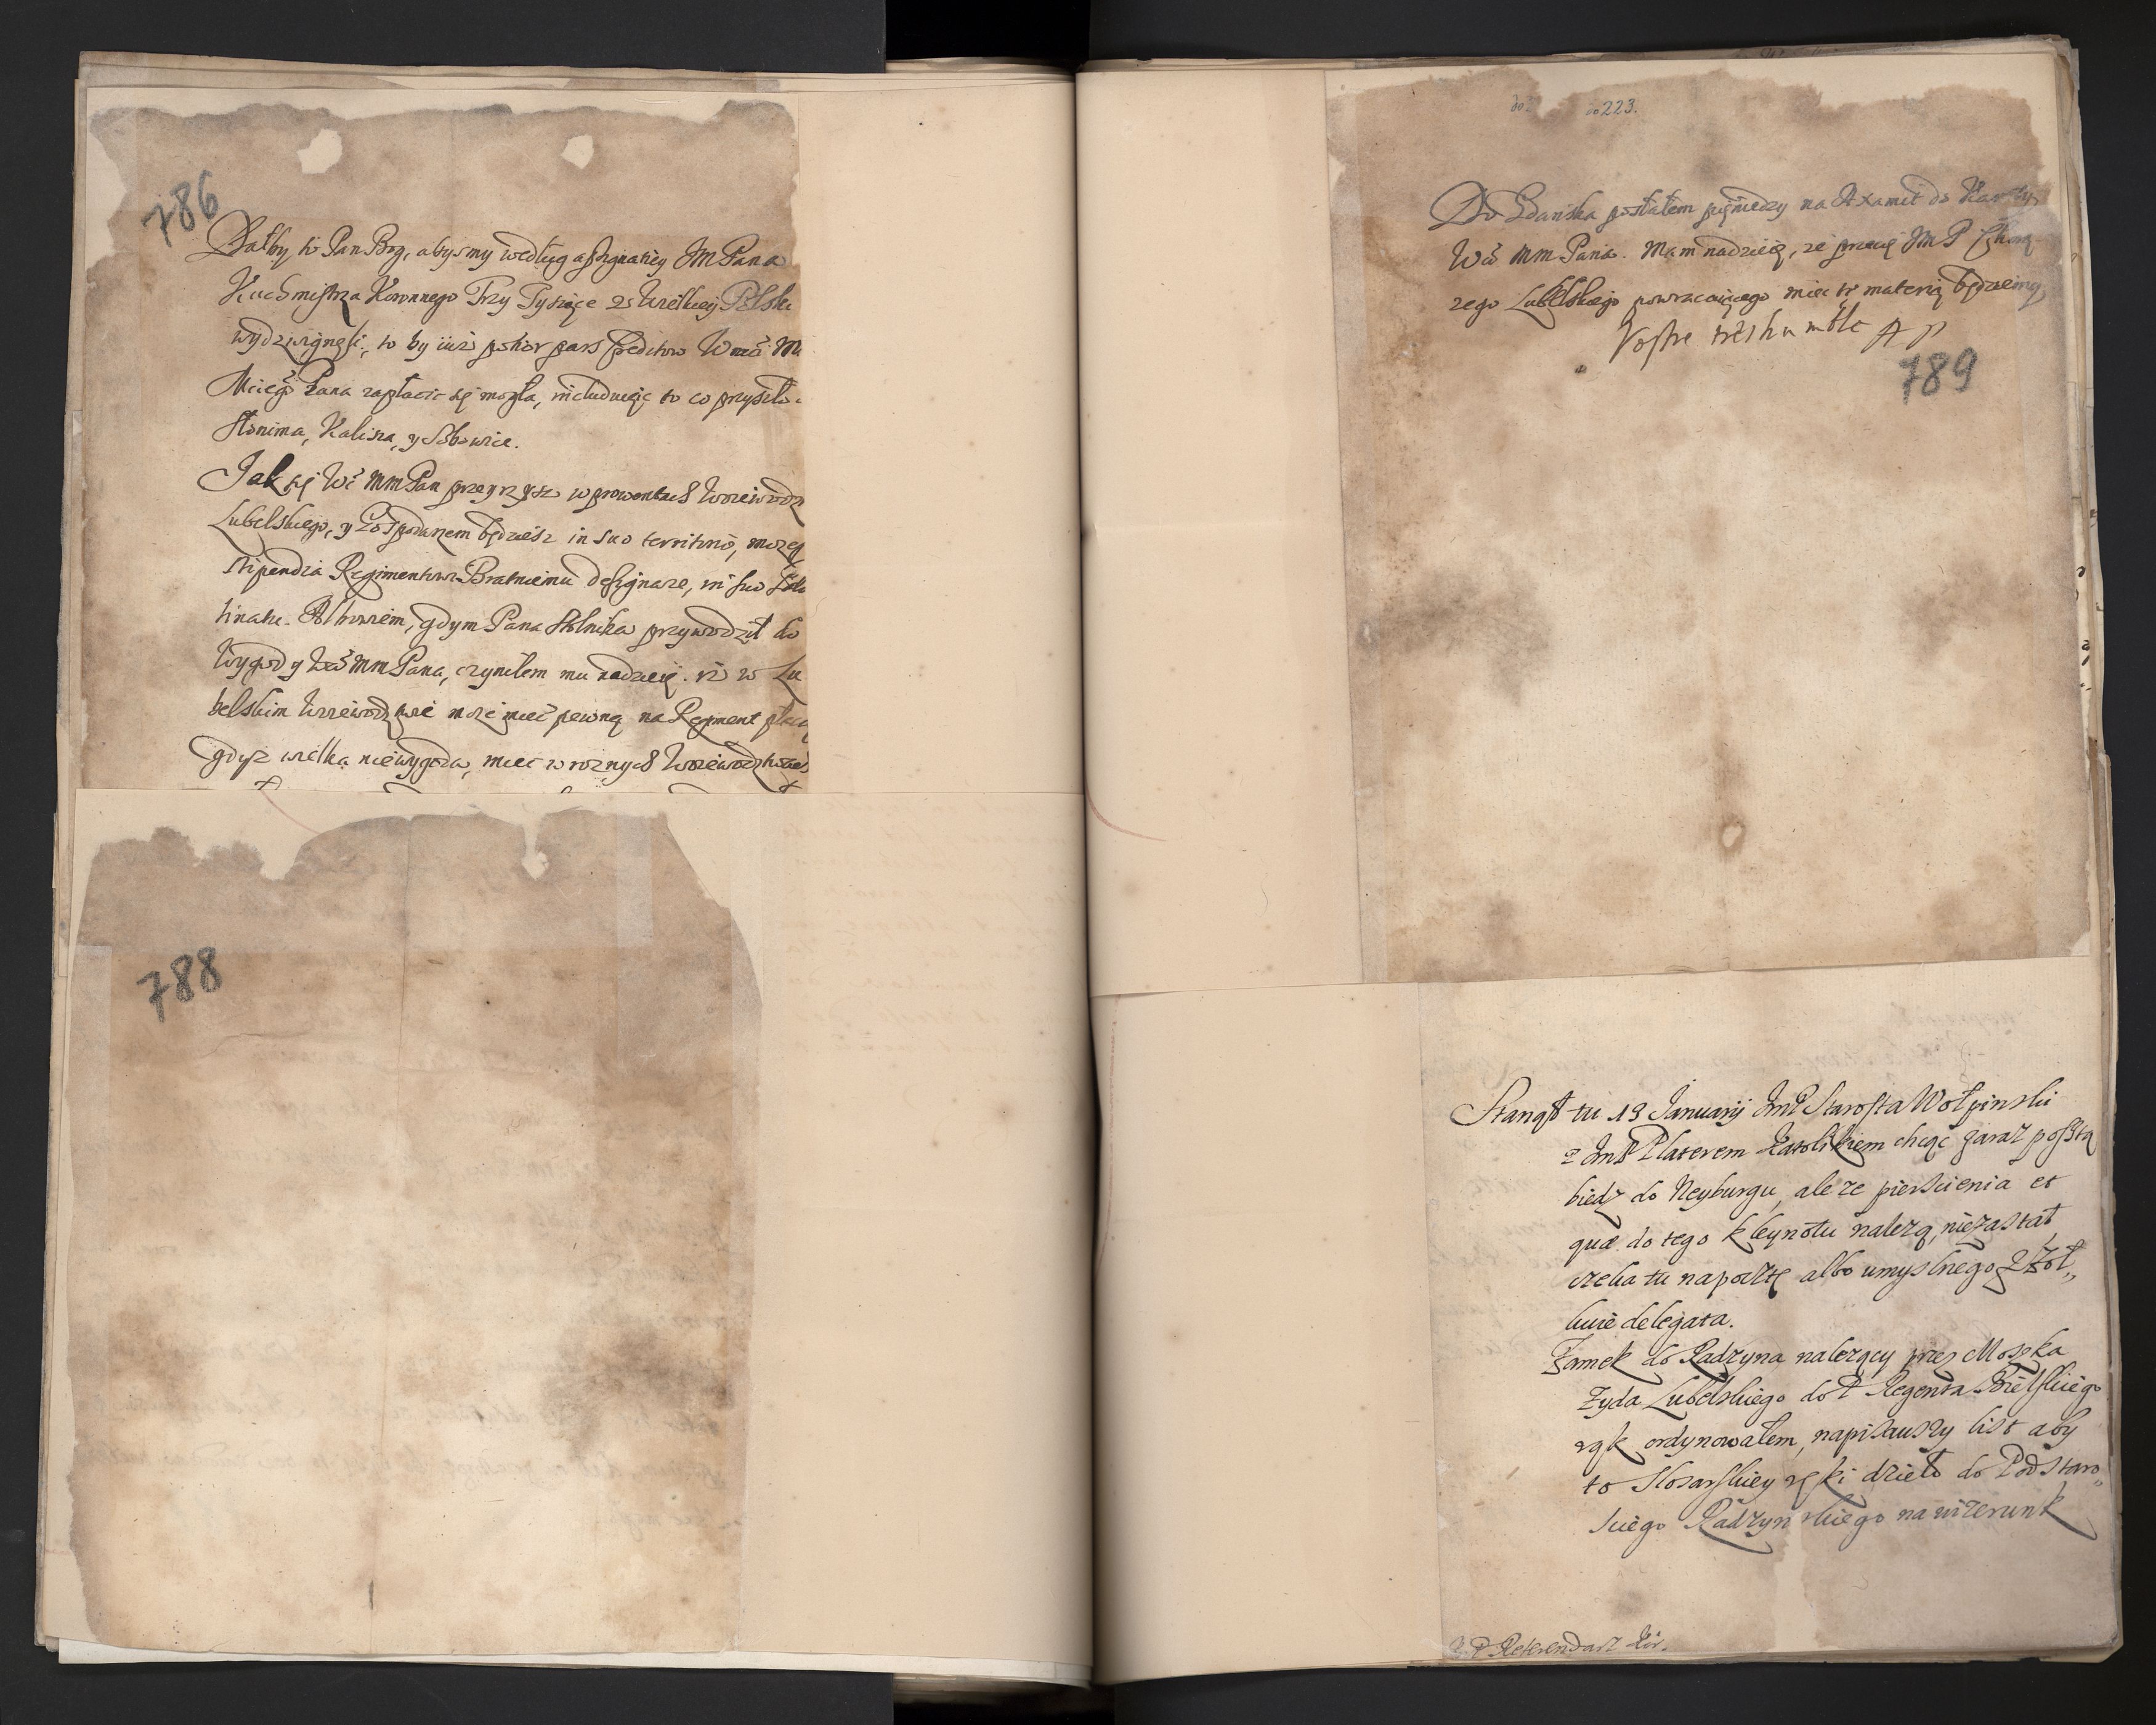 786
Dałby to Pan Bog, abysmy według assignatiey JM Pana
Kuchmistrza Koronnego Trzy Tysiące z Wielkiey Polski
wydzwignęli, to by iuż potior pars Creditorw Wmć M
Mciego Pana zapłacic się mogła, includuięc to co przyszło
Słonima, Kalisza, y Sobowice.
Jak się Wć MM Pan przeyrzysz w prowentach Woiewodz
Lubelskiego, y Gospodarzem będziesz in suo territorio, mozesz
stipendia Regimentowi Bratniemu designare, in suo
tinatu. Albowiem, gdym Pana Stolnika przywodził do
Wygody Wć MM Pana, czyniłem mu nadzieię. iż w Lu
belskim Woiewodztwie może mieć pewną na Regiment płacę
gdysz wielka niewygoda, miec w roznych Woiewodztwach
788
do 223.
Do Gdanska posłałem pięniedzy na Axamit do Karety
Wć MM Pana. Mam nadzieię, że przez JM P Chorą
zego Lubelskiego powracaiącego miec tę materią będziemy
Vostre treshumble A p
789
Stanął tu 19 Januarij JmP Starosta Wołpinski
z JmP Platerem Katolikiem chcąc zaraz posztą
biedz do Neyburgu, ale że pierscienia et
quæ do tego kleynotu nalezą, niezastał
czeka tu na pocztę albo umyslnego z Żoł„
kwie delegata.
Zamek do Radzyna nalezący przez Moszka
Zyda Lubelskiego do P Regenta Bielskiego
rąk ordynowałem, napisawszy list aby
to slosarskiey ręki dzieło do Podstaro„
sciego Radzynskiego na wizerunk
P Referendarz Kor.